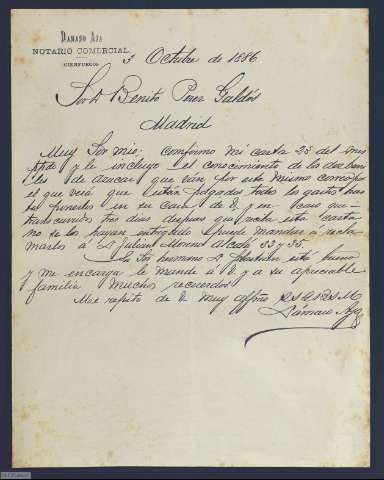 DAMASO AJA
NOTARIO COMERCIAL
CIENFUEGOS
3 Octubre de 1886
Sor Dn Benito Perez Galdós
Madrid
Muy Sor mio: confirmo mi carta 23 del mes
ppdo y le incluyo el conocimiento de los dos barri
les de azucar que van por este mismo correo, por
el que verá que están pagados todos los gastos has
ta ponerlos en su casa de V. y en caso que
transcurridos tres dias despues que reciba esta carta
no se los hayan entregado puede mandar á recla
marlos á Dn Julian Moreno Alcalá 33 y 35.
Su Sor hermano Dn está bueno
y me encarga le mande á V. y a su apreciable
familia muchos recuerdos.
Me repito de V. muy affmo
Dámaso Aja